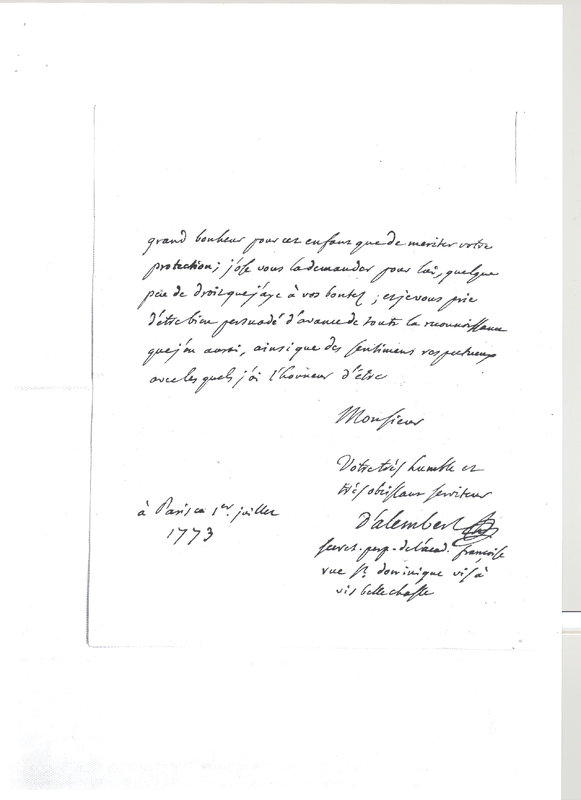 grand bonheur pour cet enfant que de meriter votre
protection; j'ose vous la demander pour lui, quelque
peu de droit que j'aye à vos bontez; et je vous prie
d'être bien persuadé d'avance de toute la reconnoissance
que j'en aurai, ainsi que des sentimens respectueux
avec les quels j'ai l'honneur d'être
Monsieur
Votre très humble et
très obéissant serviteur
à Paris ce 1er. juillet
1773
D'alembert
secret. perp. de l'acad. françoise
rue St. dominique vis à
vis belle chasse